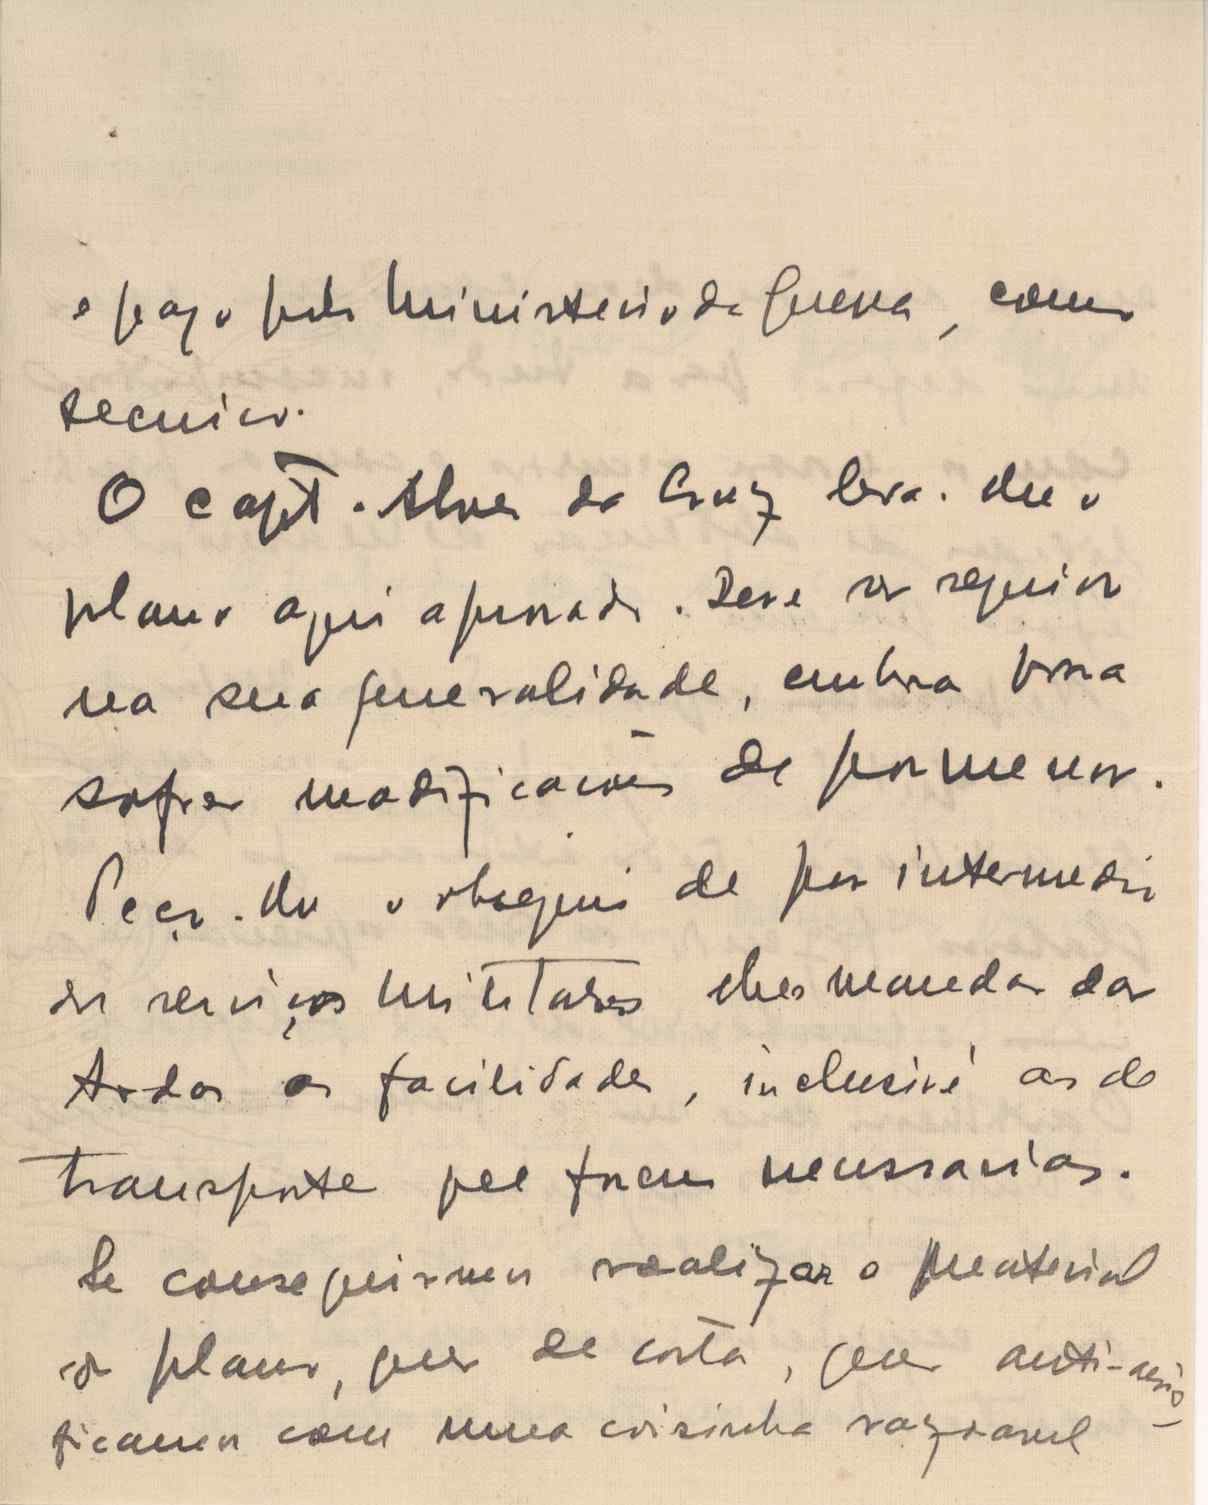 e pago pelo Ministerio da Guerra, como
tecnico.
O capt. Alves da Cruz leva-lhe o
plano aqui aprovado. Deve ser seguido
na sua generalidade, embora possa
sofrer modificações de pormenor.
Peço-lhe o obsequio de por intermedio
dos serviços Militares lhes mandar dar
todas as facilidades, inclusivé as de
transporte que forem necessarias.
Se conseguirmos realizar o material
do plano, quer de costa, quer anti-aerio-
ficamos com uma coisinha razoavel